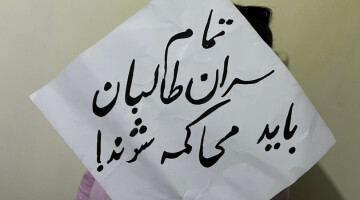 تمام
سران طالبان
باید محاکمه شوند!